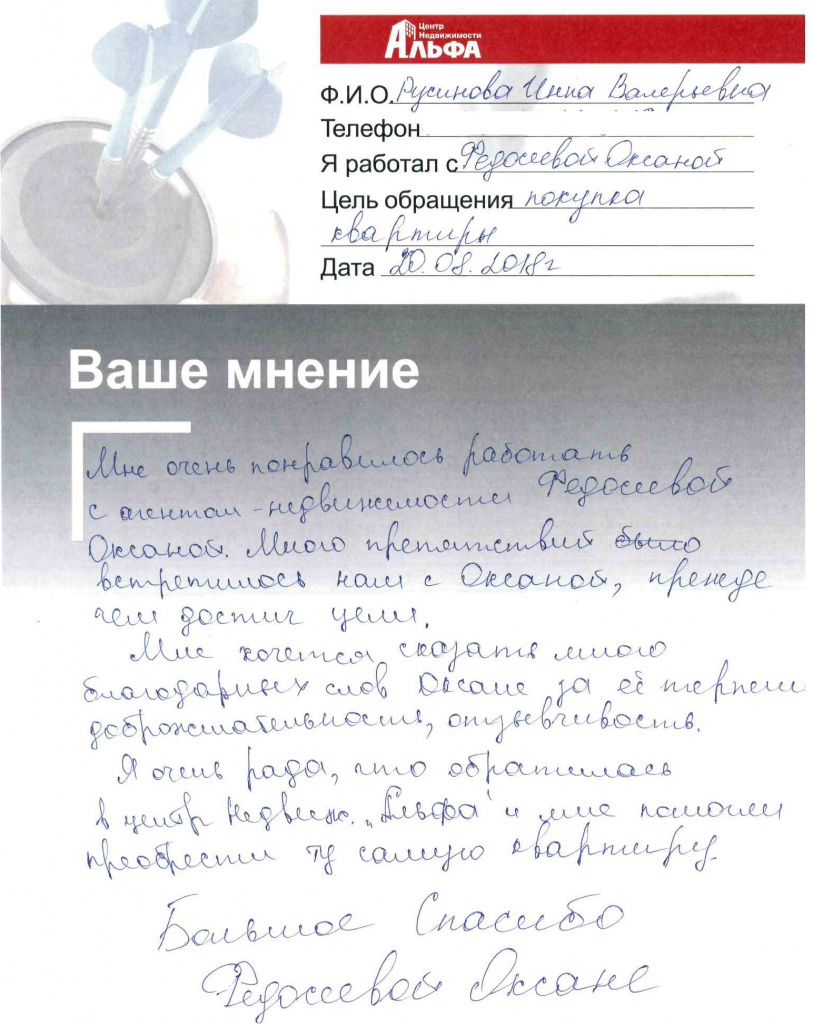 Центр
Недвижимости
АЛЬФА
Ф.И.О. Русинова Инна Валерьевна
Телефон
Я работал с Федосеевой Оксаной
Цель обращения покупка
квартиры
Дата 20.08.2018г
Ваше мнение
Мне очень понравилось работать
с агентом-недвижемости Федосеевой
Оксаной. Много препятствий было
встретилось нам с Оксаной, прежде
чем достич цели.
Мне хочется сказать много
благодарных слов Оксане за её терпени
доброжелательность, отзывчивость.
Я очень рада, что обратилась
в центр Недвиж. „Альфа" и мне помогли
преобрести ту самую квартиру.
Большое Спасибо
Федосеевой Оксане